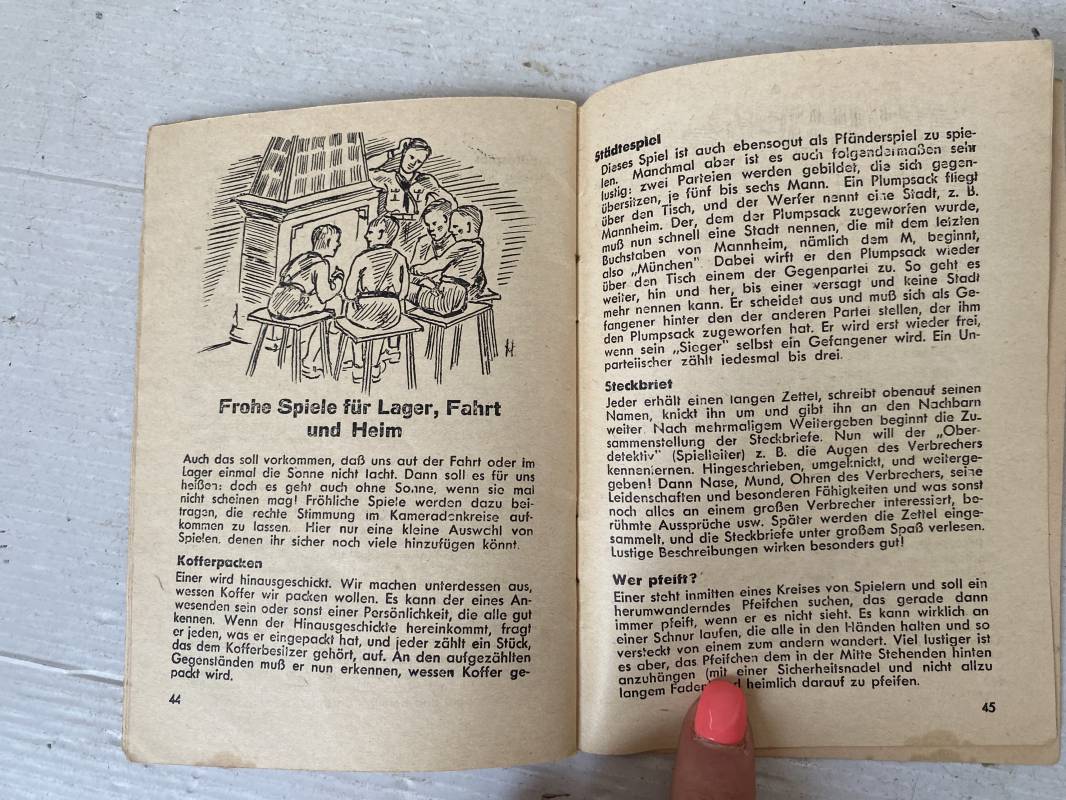 Frohe Spiele für Lager, Fahrt
und Heim
Auch das soll vorkommen, daß uns auf der Fahrt oder im
Lager einmal die Sonne nicht lacht. Dann soll es für uns
heißen: doch es geht auch ohne Sonne, wenn sie mal
nicht scheinen mag! Fröhliche Spiele werden dazu bei-
tragen, die rechte Stimmung im Kameradenkreise auf-
kommen zu lassen. Hier nur eine kleine Auswahl von
Spielen, denen ihr sicher noch viele hinzufügen könnt.
Kofferpacken
Einer wird hinausgeschickt. Wir machen unterdessen aus,
wessen Koffer wir packen wollen. Es kann der eines An-
wesenden sein oder sonst einer Persönlichkeit, die alle gut
kennen. Wenn der Hinausgeschickte hereinkommt, fragt
er jeden, was er eingepackt hat, und jeder zählt ein Stück,
das dem Kofferbesitzer gehört, auf. An den aufgezählten
Gegenständen muß er nun erkennen, wessen Koffer ge-
packt wird.
44
Städtespiel
Dieses Spiel ist auch ebensogut als Pfänderspiel zu spie-
len. Manchmal aber ist es auch folgendermaßen sehr
lustig: zwei Parteien werden gebildet, die sich gegen-
übersitzen, je fünf bis sechs Mann. Ein Plumpsack fliegt
über den Tisch, und der Werfer nennt eine Stadt, z. B.
Mannheim. Der, dem der Plumpsack zugeworfen wurde,
muß nun schnell eine Stadt nennen, die mit dem letzten
Buchstaben von Mannheim, nämlich dem M, beginnt,
also „München" Dabei wirft er den Plumpsack wieder
über den Tisch einem der Gegenpartei zu. So geht es
weiter, hin und her, bis einer versagt und keine Stadt
mehr nennen kann. Er scheidet aus und muß sich als Ge-
fangener hinter den der anderen Partei stellen, der ihm
den Plumpsack zugeworfen hat. Er wird erst wieder frei,
wenn sein „Sieger" selbst ein Gefangener wird. Ein Un-
parteiischer zählt jedesmal bis drei.
Steckbrief
Jeder erhält einen langen Zettel, schreibt obenauf seinen
Namen, knickt ihn um und gibt ihn an den Nachbarn
weiter. Nach mehrmaligem Weitergeben beginnt die Zu-
sammenstellung der Steckbriefe. Nun will der „Ober-
detektiv" (Spielleiter) z. B. die Augen des Verbrechers
kennenlernen. Hingeschrieben, umgeknickt, und weiterge-
geben! Dann Nase, Mund, Ohren des Verbrechers, seine
Leidenschaften und besonderen Fähigkeiten und was sonst
noch alles an einem großen Verbrecher interessiert, be-
rühmte Aussprüche usw. Später werden die Zettel einge-
sammelt, und die Steckbriefe unter großem Spaß verlesen.
Lustige Beschreibungen wirken besonders gut!
Wer pfeift?
Einer steht inmitten eines Kreises von Spielern und soll ein
herumwanderndes Pfeifchen suchen, das gerade dann
immer pfeift, wenn er es nicht sieht. Es kann wirklich an
einer Schnur laufen, die alle in den Händen halten und so
versteckt von einem zum andern wandert. Viel lustiger ist
es aber, das Pfeifchen dem in der Mitte Stehenden hinten
anzuhängen (mit einer Sicherheitsnadel und nicht allzu
langem Faden heimlich darauf zu pfeifen.
45